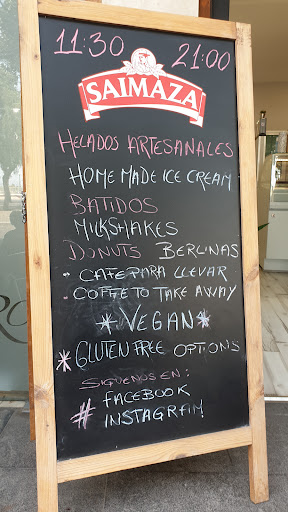 11:30 21:00
SAIMAZA
HELADOS ARTESANALES
HOME MADE ICE CREAM
BATIDOS
MILKSHAKES
DONUTS BERLINAS
- CAFE PARA LLEVAR
- COFFE TO TAKE AWAY
*VEGAN*
*GLUTEN FREE OPTIONS
SIGUENOS EN:
# FACEBOOK
INSTAGRAM